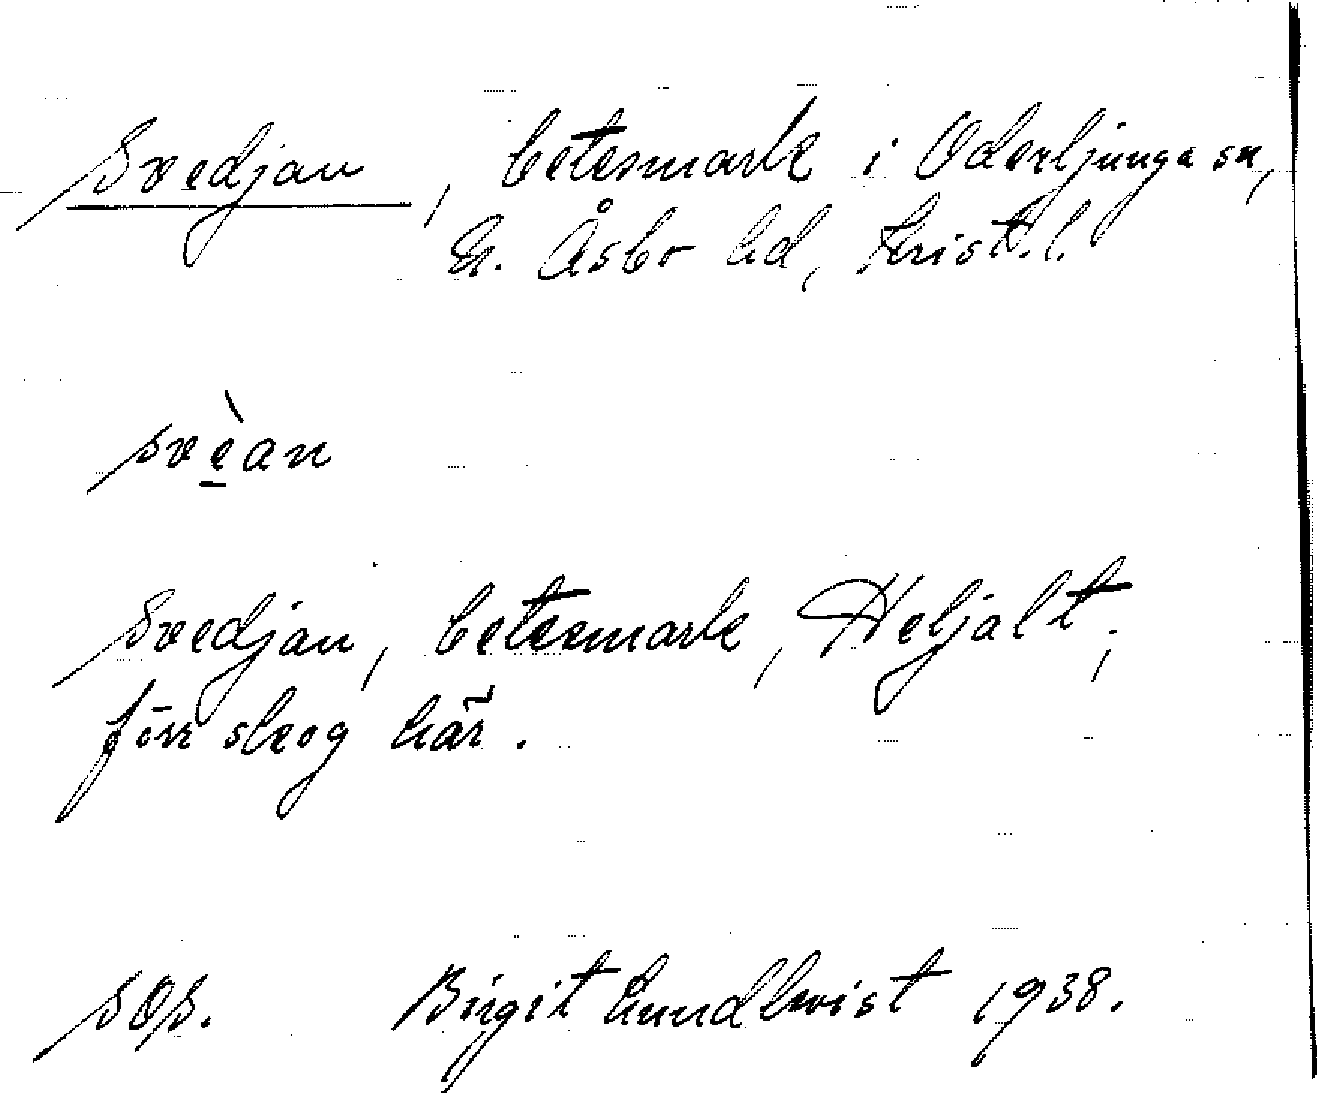 Svedjan, betesmark i Oderljunga sn,
G. Åsbo hd, Krist. l.
svèan
Svedjan, betesmark, Heljalt;
förr skog här.
SOS. Birgit Lundkvist 1938.